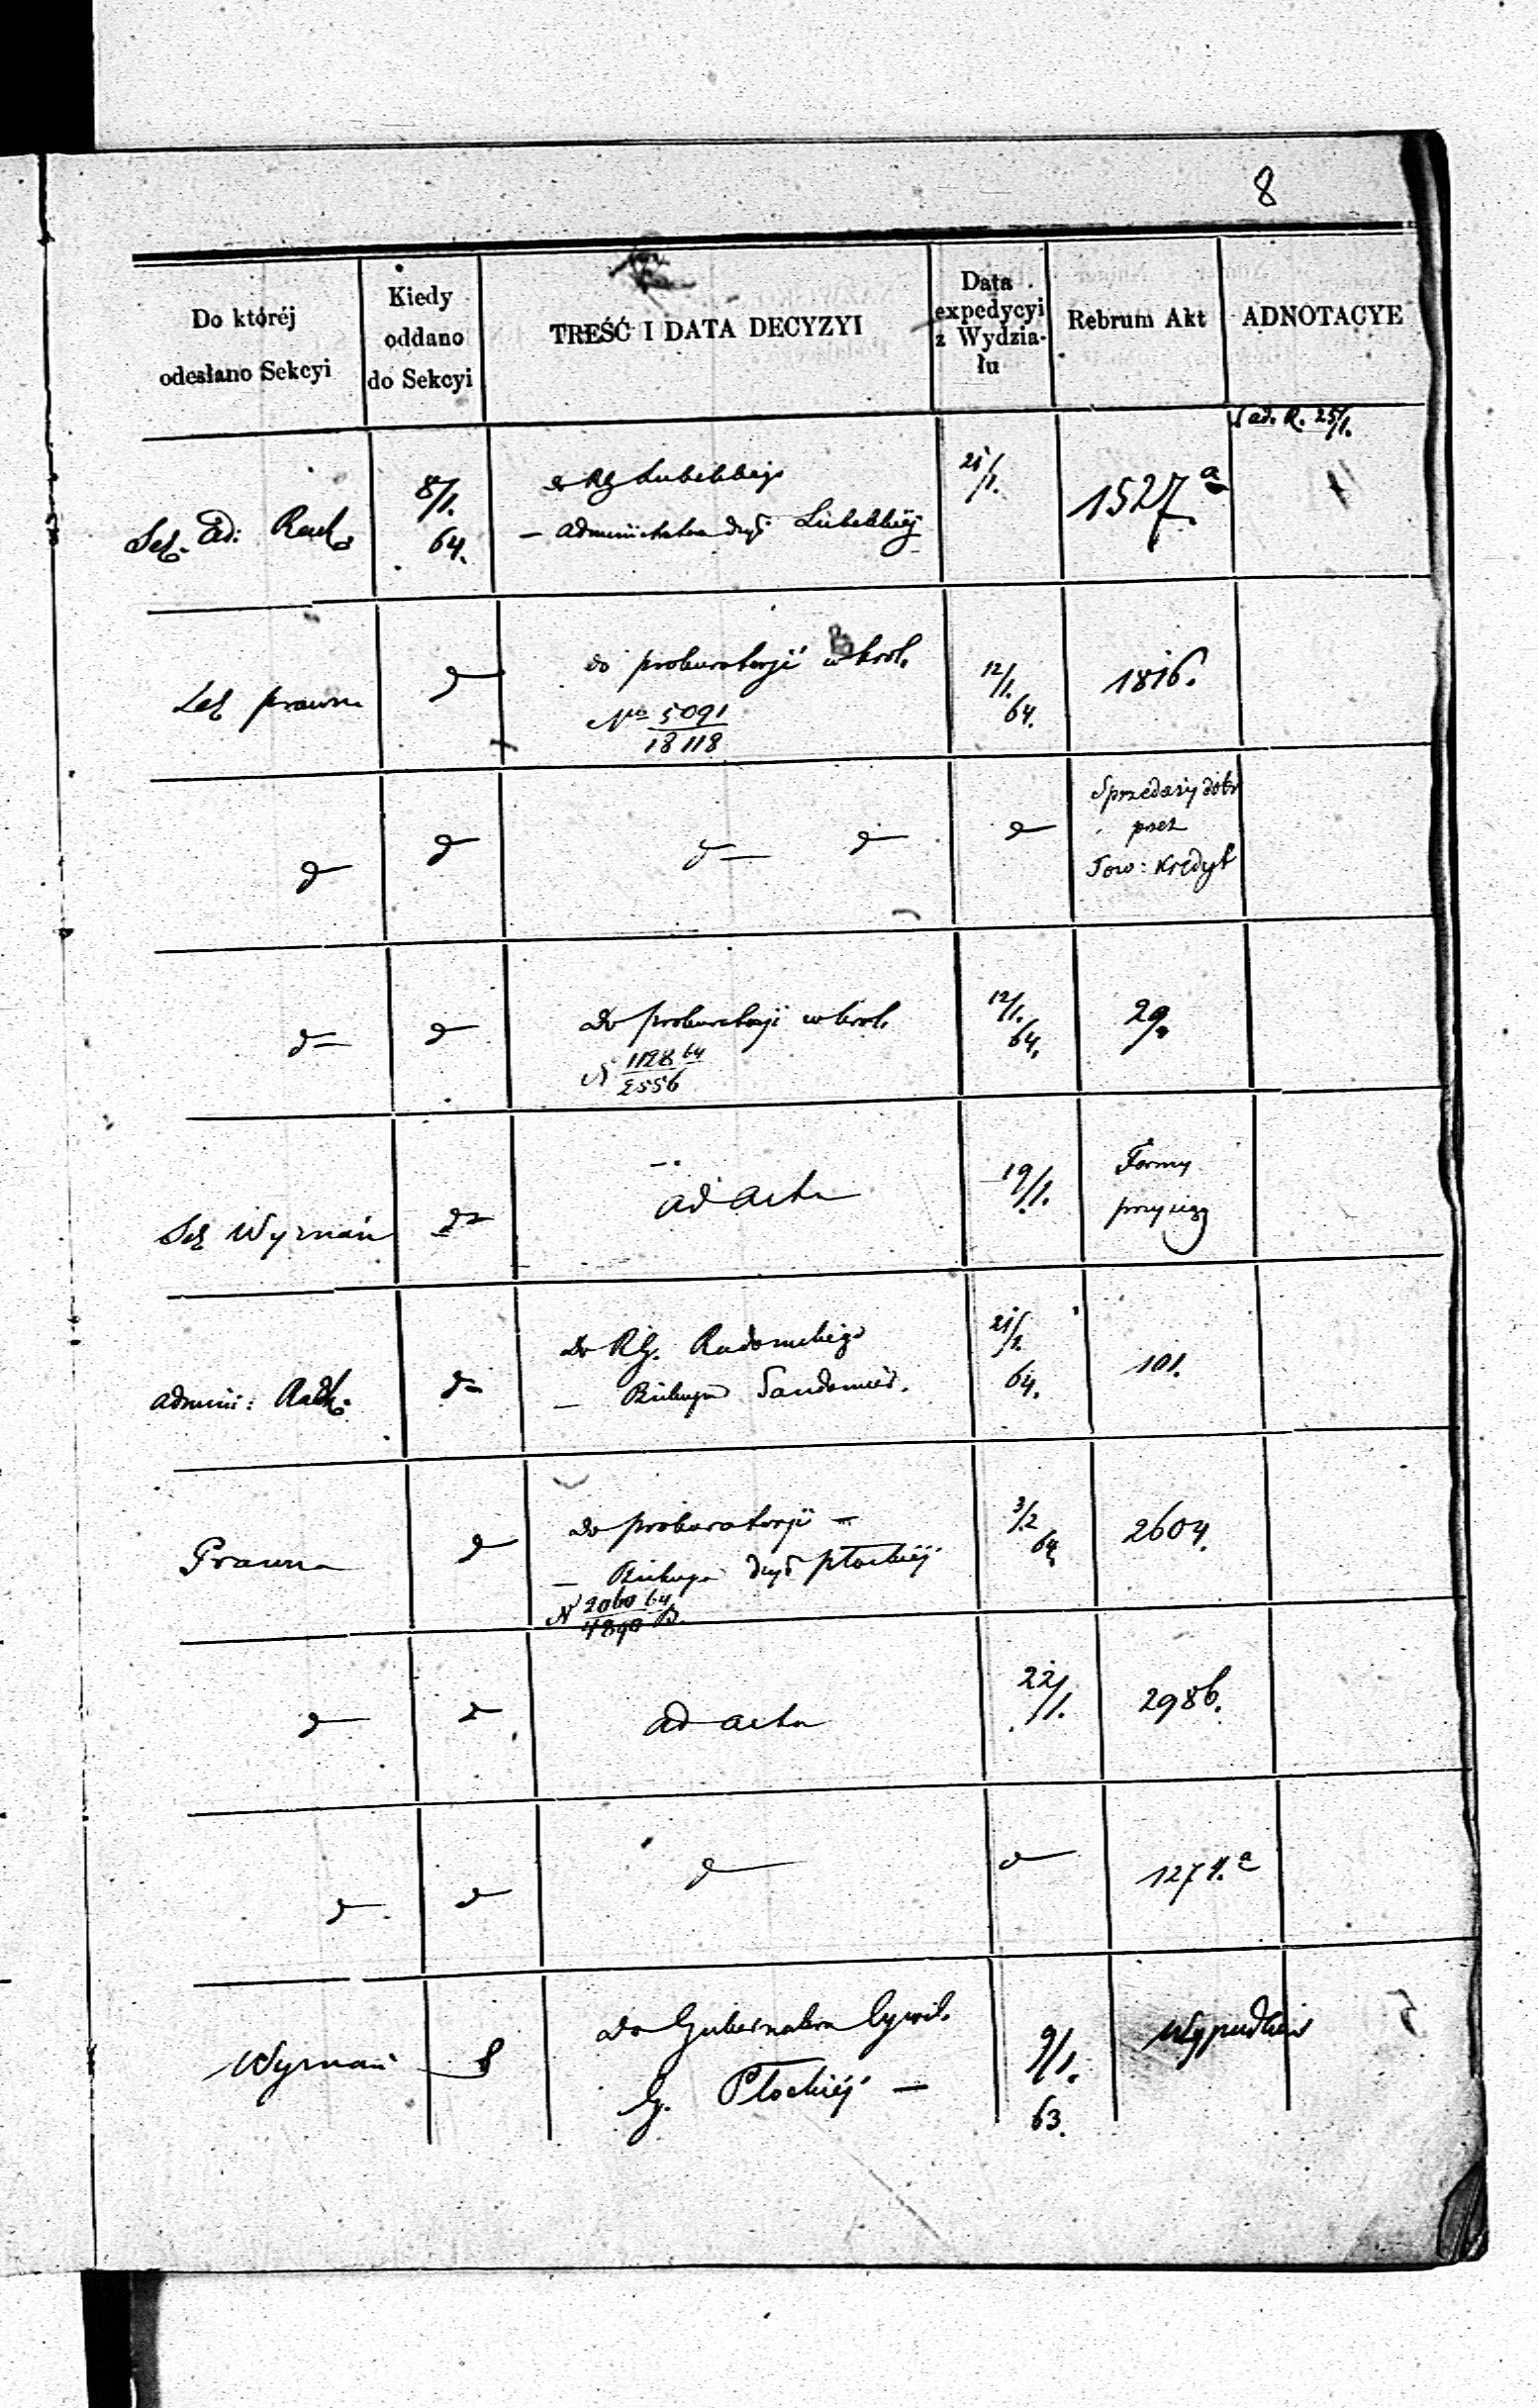 8
Do któréj odesłano Sekcyi
Kiedy oddano do Sekcyi
TREŚĆ I DATA DECYZYI
Data expedycyi z Wydziału
Rebrum Akt
ADNOTACYE
ad. R. 25/1.
Sek. Ad: Rach.
8/1. 64.
do RG Lubelskiego
– Administratora dyec Lubelskiéj
21/1.
1527.a
Sek prawna
d
do prokuratoryi w krol.
No 5091/18118
12/1. 64.
1816.
d
d
d d
d
Sprzedaży dóbr
przez
Tow: Kredyt
d
d
do prokuratoryi w krol.
N 1128 64/2556
12/1. 64.
29.
Sek Wyznań
d
ad acta
19/1.
Formy
przysięg
Admini: Rach.
d
do RG. Radomskiego
– Biskupa Sandomier.
21/1. 64.
101.
Prawna
d
do prokuratoryi –
– Biskupa dyec Płockiéj
N 2060 64/4890 B.
3/2 64
2604.
d
d
ad acta
22/1.
2986.
d
d
d
d
1271.a
Wyznań
8
do Gubernatora Cywil.
G. Płockiéj –
9/1. 63.